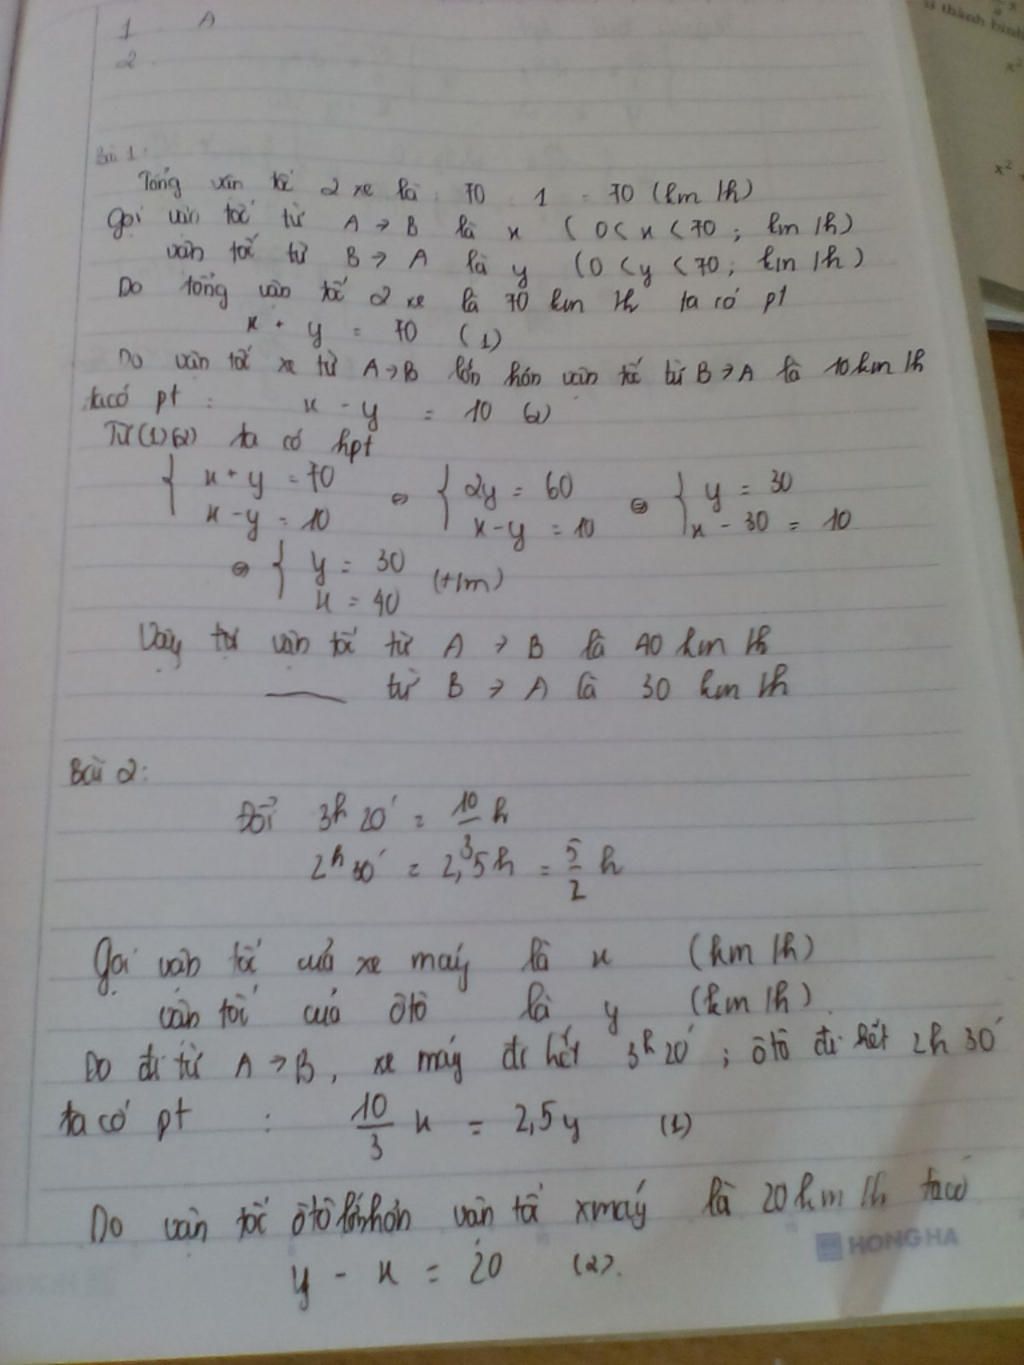 1 A
2
Bài 1:
Tổng vận tốc 2 xe là : 70 : 1 = 70 (km/h)
Gọi vận tốc từ A → B là x (0 < x < 70 ; km/h)
vận tốc từ B → A là y (0 < y < 70 ; km/h)
Do tổng vận tốc 2 xe là 70 km/h ta có pt
x + y = 70 (1)
Do vận tốc xe từ A → B lớn hơn vận tốc từ B → A là 10 km/h
ta có pt : x - y = 10 (2)
Từ (1)(2) ta có hpt
{ x + y = 70 ⇔ { 2y = 60 ⇔ { y = 30
x - y = 10 x - y = 10 x - 30 = 10
⇔ { y = 30 (t/m)
x = 40
Vậy vận tốc từ A → B là 40 km/h
từ B → A là 30 km/h
Bài 2:
Đổi 3h 20' = 10/3 h
2h 30' = 2,5h = 5/2 h
Gọi vận tốc của xe máy là x (km/h)
vận tốc của ôtô là y (km/h)
Do đi từ A → B, xe máy đi hết 3h 20' ; ôtô đi hết 2h 30'
ta có pt : 10/3 x = 2,5y (1)
Do vận tốc ôtô lớn hơn vận tốc xmáy là 20 km/h ta có
y - x = 20 (2).
HONG HA
x²
x²